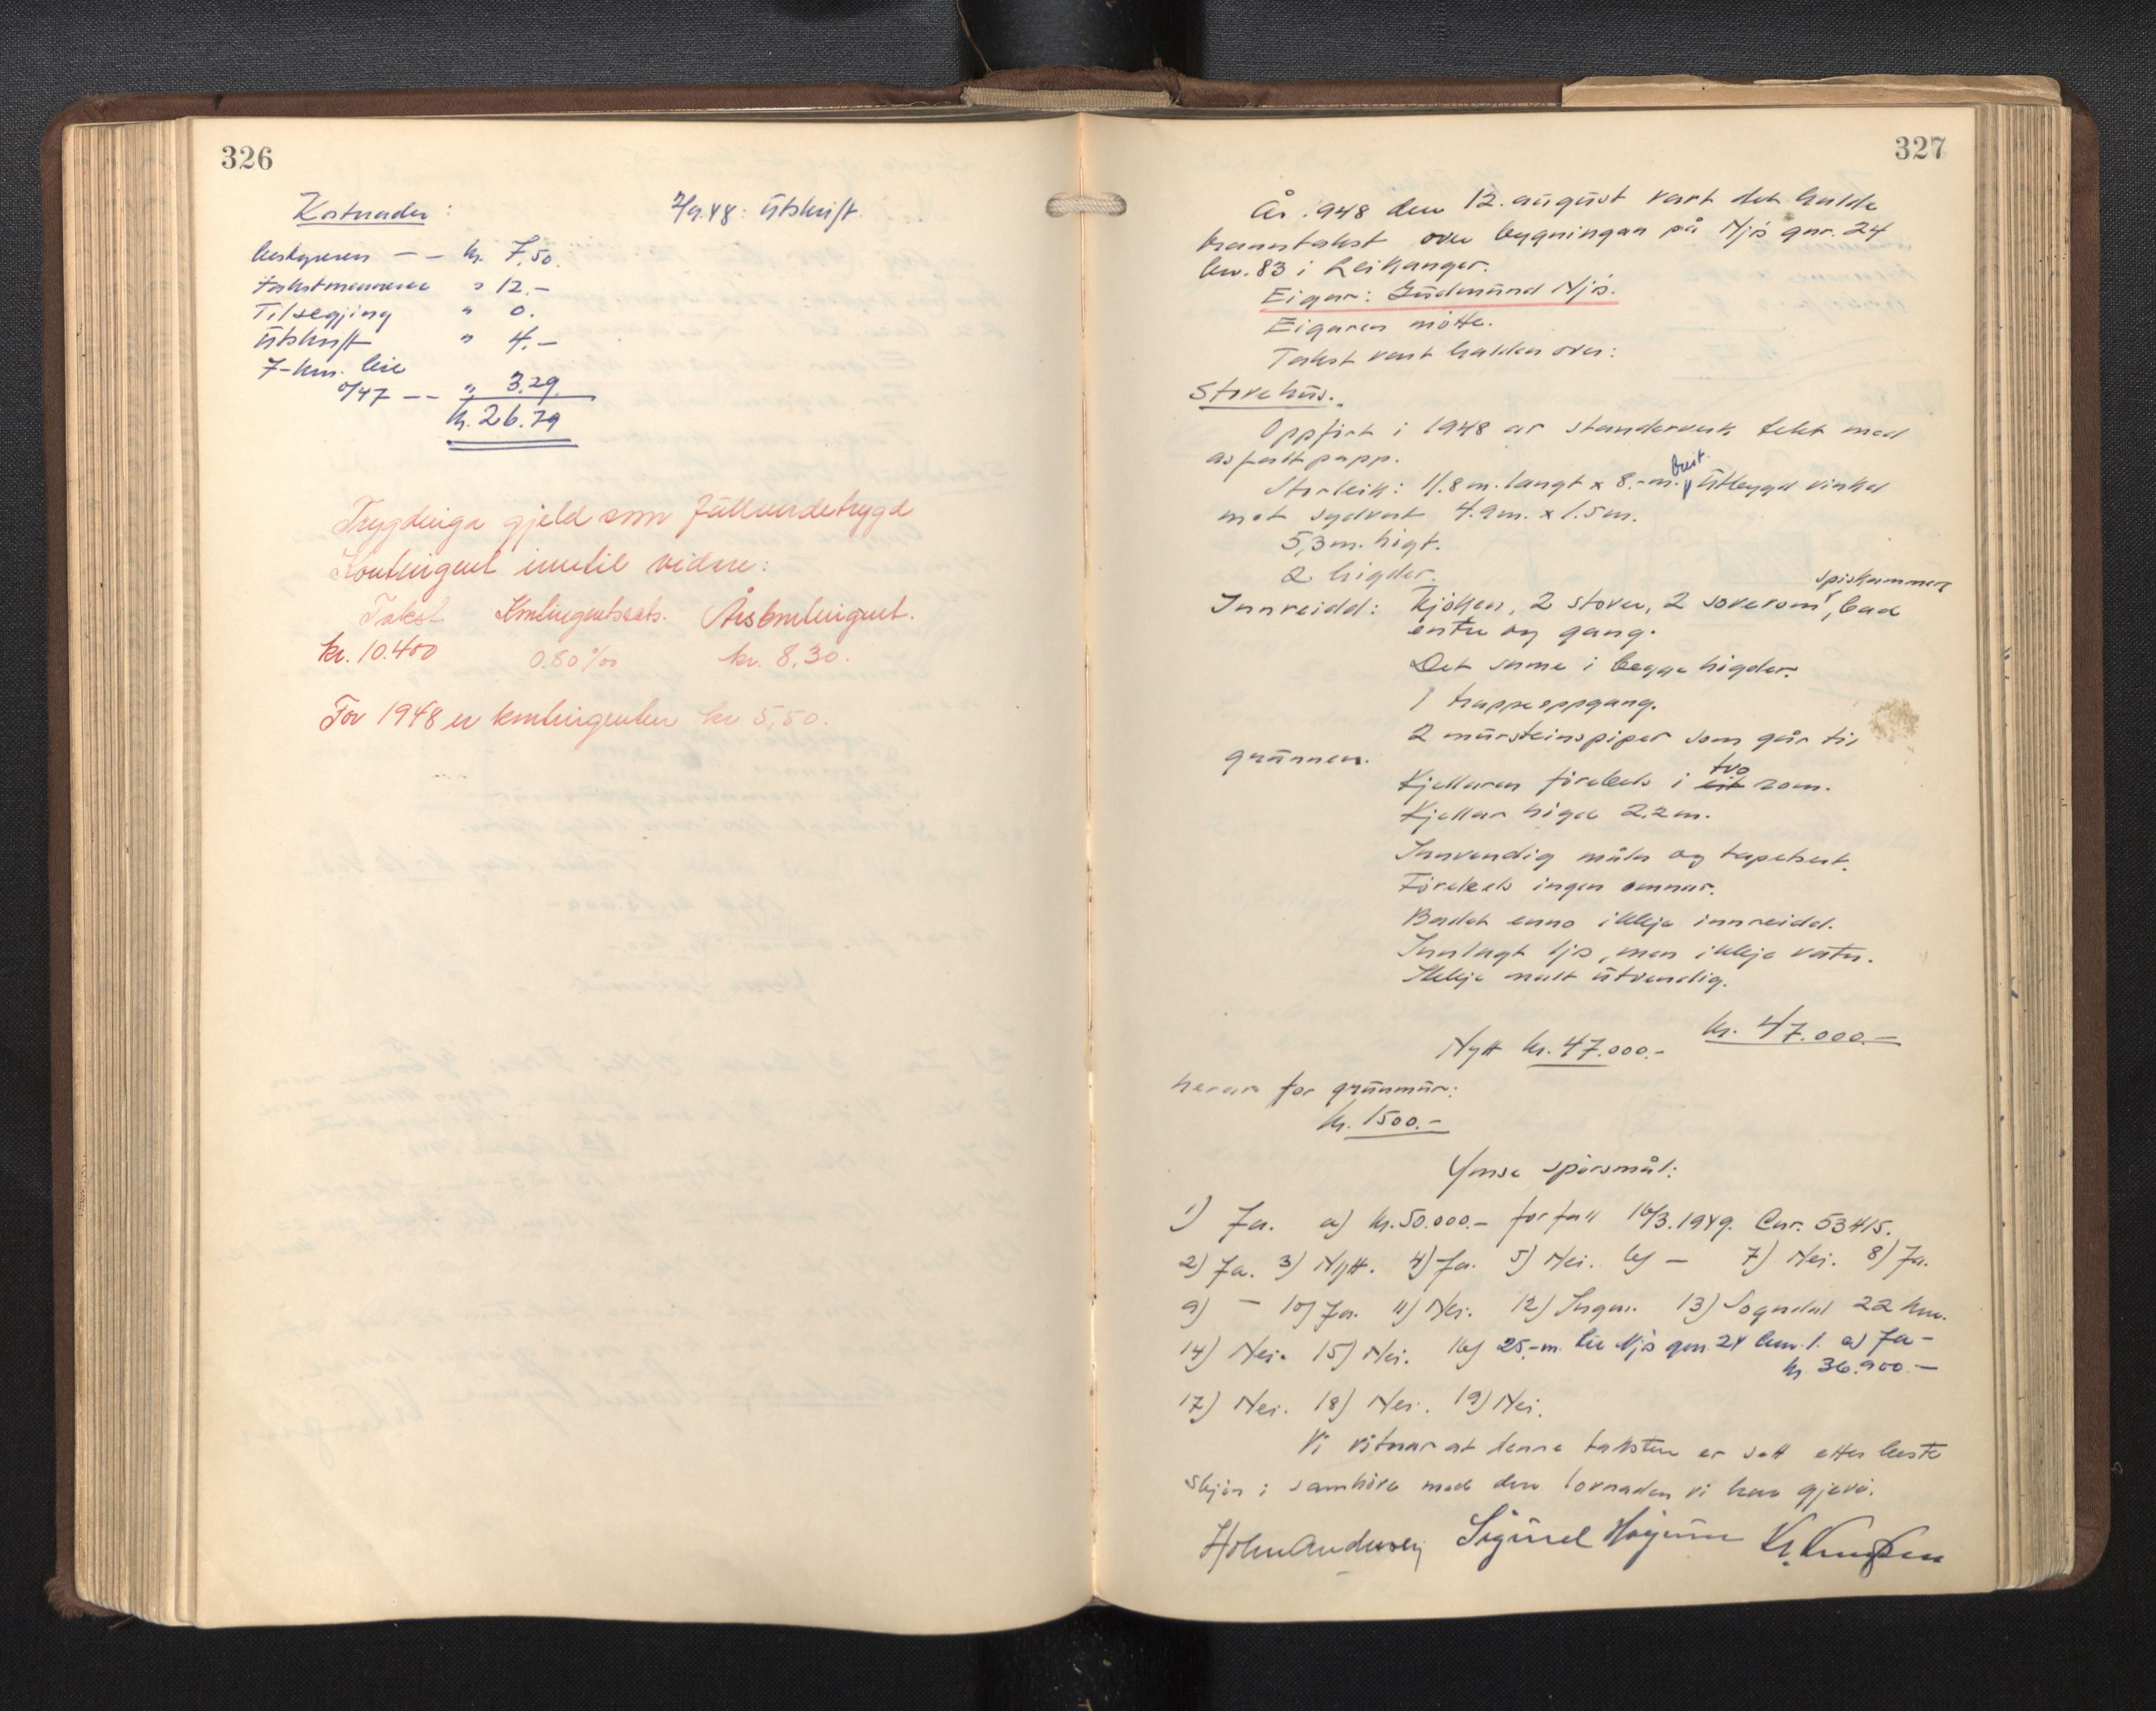 326
Kostnader:
2/9.48: Utskrift.
Bestyraren — — kr. 7,50.
Takstmennene " 12.—
Tilsegjing " 0.
Utskrift " 4.—
7-km. leie
0/47 — — " 3.29.
kr. 26.79
Trygdinga gjeld som fullverdetrygd
Kontingent inntil vidare:
Takst Kontingentsats. Årskontingent.
kr. 10.400 0.80 ‰ kr. 8.30.
For 1948 er kontingenten kr 5,50.
327
År 1948 den 12. august vart det halde
branntakst over bygningan på Njøs gnr. 24
bnr. 83 i Leikanger.
Eigar: Gudmund Njøs.
Eigaren møtte.
Takst vart halden over:
Stovehus.
Oppført i 1948 av standerverk tekt med
asfaltpapp.
Storleik: 11.8 m. langt x 8.-m. breit. Utbygd vinkel
mot sydvest 4.9m. x 1.5m.
5,3 m. høgt.
2 høgder.
Innreidd: kjøken, 2 stover, 2 soverom, spiskammers, bad
entre og gang.
Det same i begge høgder.
1 trappeoppgang.
2 mursteinspiper som går til
grunnen.
Kjellaren førebels i eit tvo rom.
Kjellar høgd 2.2m.
Innvendig måla og tapetsert.
Førebels ingen omnar.
Badet enno ikkje innreidd.
Innlagt ljos, men ikkje vatn.
Ikkje malt utvendig.
kr. 47.000.—
Nytt kr. 47.000.-
herav for grunnmur:
kr. 1500.—
Ymse spørsmål:
1) Ja. a) kr. 50.000.- forfall 16/3.1949. Cnr. 53415.
2) Ja. 3) Nytt. 4) Ja. 5) Nei. 6) — 7) Nei. 8) Ja.
9) — 10) Ja. 11) Nei. 12) Ingen. 13) Sogndal 22 km.
14) Nei. 15) Nei. 16) 25.-m. til Njøs gnr. 24 bnr. 1. a) Ja -
kr. 36.900.—
17) Nei. 18) Nei. 19) Nei.
Vi vitnar at denne taksten er sett etter beste
skjøn i samhøve med den lovnaden vi har gjeve.
Holm Andersen Sigurd Høyum Kr. Knutsen